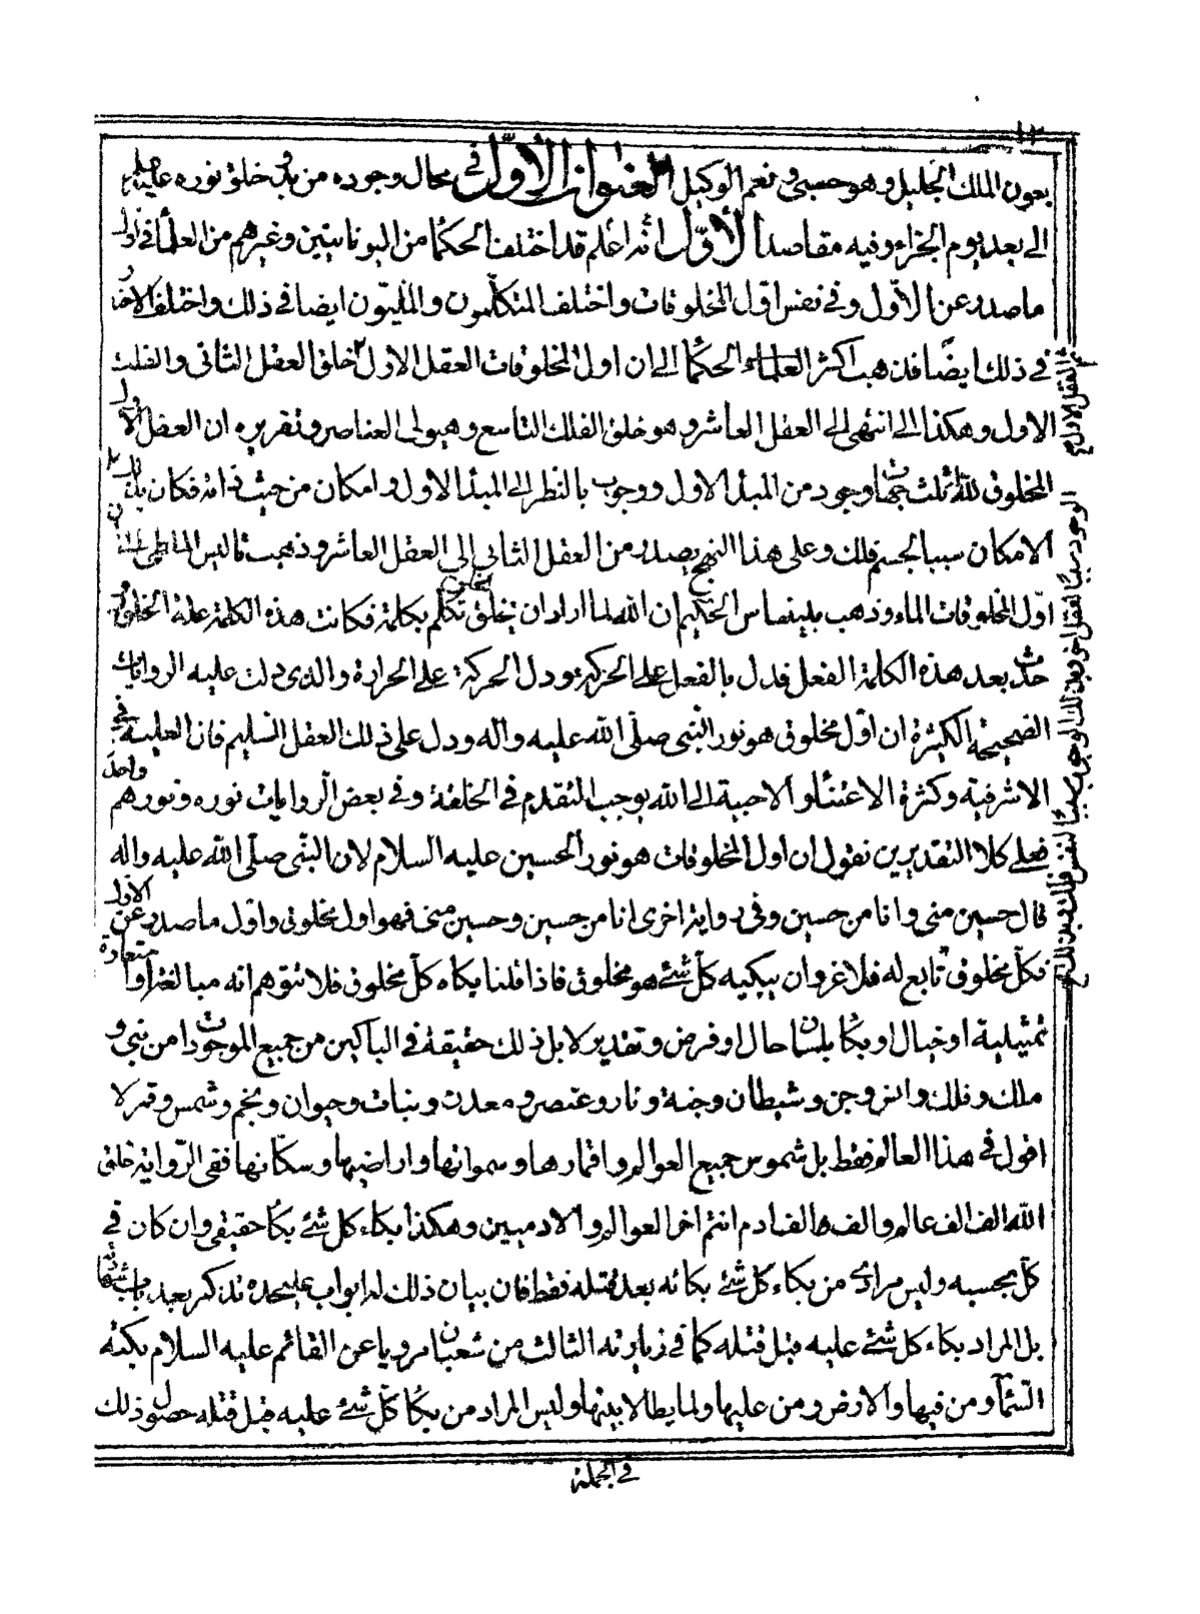 ١٢
بعون الملك الجليل وهو حسبي ونعم الوكيل العنوان الأوّل في محال وجوده من بدو خلق نوره عليه السلم
الى بعد يوم الجزاء وفيه مقاصد الأوّل انه اعلم قد اختلف الحكما من اليونانيين وغيرهم من العلماء في اول
ما صدر عن الاوّل وفي نفس اوّل المخلوقات واختلف المتكلّمون والملّيّون ايضا في ذلك واختلف الاخبار
في ذلك ايضًا فذهب اكثر العلماء الحكما الى ان اول المخلوقات العقل الاول خلق العقل الثانى والفلك
الاول وهكذا الى انتهى الى العقل العاشر وهو خلق الفلك التاسع وهيولى العناصر وتقريره ان العقل الاول
المخلوق لله ثلث جهات وجود من المبدا الاول ووجوب بالنظر الى المبدا الاول وامكان من حيث ذاته فكان بذلك
الامكان سببا لجسم فلك وعلى هذا النهج يصدر من العقل الثانى الى العقل العاشر وذهب ثاليس الملطى الى ان
اوّل المخلوقات الماء وذهب بلينصاس الحكيم ان الله لما اراد ان يخلق الخلق تكلّم بكلمة فكانت هذه الكلمة علة الخلق
حدث بعد هذه الكلمة الفعل فدل بالفعل على الحركة ودل الحركة على الحرارة والذى دلت عليه الروايات
الصحيحة الكثيرة ان اوّل مخلوق هو نور النبى صلّى الله عليه واله ودل على ذلك العقل السليم فان العلية في
الاشرفية وكثرة الاعتناء والاحبية الى الله يوجب التقدم في الخلقة وفي بعض الروايات نوره ونورهم واحد
فعلى كلا التقديرين نقول ان اول المخلوقات هو نور الحسين عليه السلام لان النبى صلّى الله عليه واله
قال حسين منى وانا من حسين وفي رواية اخرى انا من حسين وحسين منى فهو اول مخلوق واوّل ما صدر عن الاول
فكلّ مخلوق تابع له فلا غرو ان يبكيه كلّ شئ هو مخلوق فاذا قلنا بكاه كلّ مخلوق فلا تتوهم انه مبالغة او استعارة
تمثيلية او خيال او بكاء بلسان حال او فرض وتقدير لا بل ذلك حقيقة في الباكين من جميع الموجودات من نبى و
ملك وفلك وانس وجن وشيطان وجنة ونار وعنصر ومعدن ونبات وحيوان ونجم وشمس وقمر لا
اقول في هذا العالم فقط بل شموس جميع العوالم واقمارها وسمواتها واراضيها وسكّانها ففى الرّواية خلق
الله الف الف عالم والف الف ادم انتم اخر العوالم والادميين وهكذا بكاء كل شئ بكاء حقيقى وان كان في
كلّ بحسبه وليس مرادى من بكاء كل شئ بكائه بعد قتله فقط فان بيان ذلك له ابواب عليحدة تذكر بعد باب شهادته
بل المراد بكاء كل شئ عليه قبل قتله كما في زيارته الثالث من شعبان مرويا عن القائم عليه السلام بكته
السّماء ومن فيها والارض ومن عليها ولما يطأ لابيتها وليس المراد من بكاء كلّ شئ عليه قبل قتله حصول ذلك
في الجملة
ثم العقل الاول
الوجود سببا لعقل اخر وبذلك الوجوب سببا لنفس فلك وبذلك